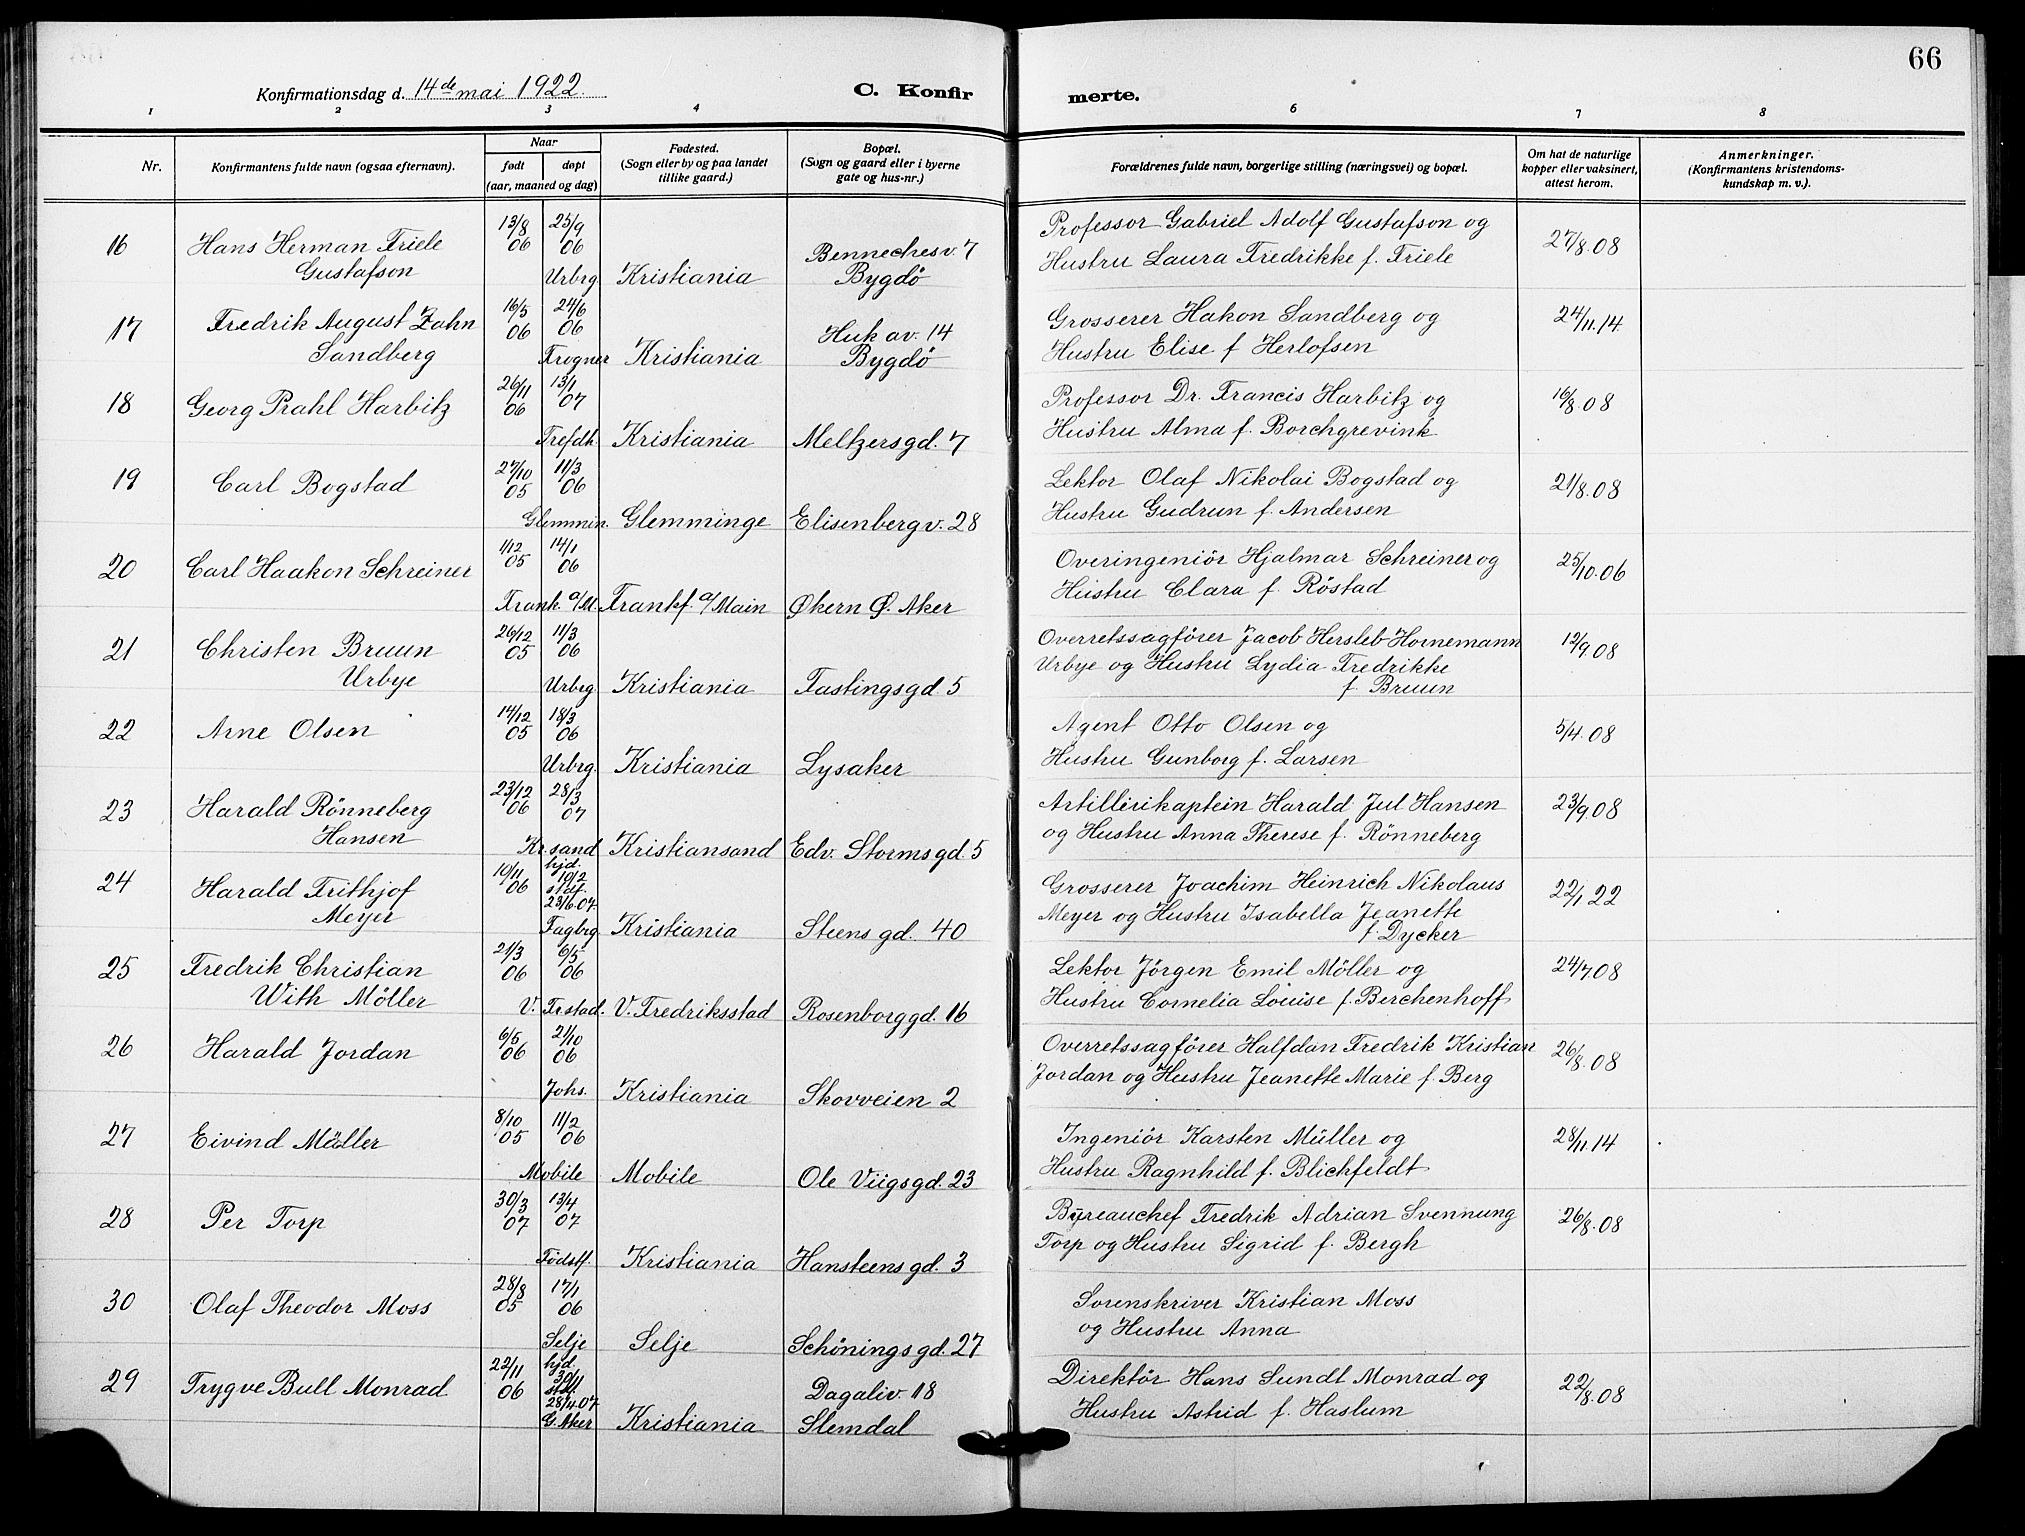 66
Konfirmationsdag d. 14de mai 1922.
C. Konfirmerte.
1 2 3 4 6 7 8
Nr.
Konfirmantens fulde navn (ogsaa efternavn).
Naar
født døpt
(aar, maaned og dag)
Fødested.
(Sogn eller by og paa landet
tillike gaard.)
Bopæl.
(Sogn og gaard eller i byerne
gate og hus-nr.)
Forældrenes fulde navn, borgerlige stilling (næringsvei) og bopæl.
Om hat de naturlige
kopper eller vaksinert,
attest herom.
Anmerkninger.
(Konfirmantens kristendoms-
kundskap m. v.).
16 Hans Herman Friele 13/8 06 25/9 06 Bennechesv. 7 Professor Gabriel Adolf Gustafson og 27/8.08
Gustafson Urbrg. Kristiania Bygdö Hustru Laura Fredrikke f. Friele
17 Fredrik August Zahn 16/5 06 24/6 06 Huk av. 14 Grosserer Hakon Sandberg og 24/11.14
Sandberg Frogner Kristiania Bygdö Hustru Elise f Herlofsen
18 Georg Prahl Harbitz 26/11 06 13/1 07 Professor Dr. Francis Harbitz og 16/8.08
Trefdh. Kristiania Meltzersgd. 7 Hustru Alma f. Borchgrevink
19 Carl Bogstad 27/10 05 11/3 06 Lektor Olaf Nikolai Bogstad og 21/8.08
Glemmin. Glemminge Elisenbergv. 28 Hustru Gudrun f. Andersen
20 Carl Haakon Schreiner 1/12 05 14/1 06 Overingeniör Hjalmar Schreiner og 25/10.06
Frank. a/M. Frankf. a/Main Økern Ø. Aker Hustru Clara f. Röstad
21 Christen Bruun 26/12 05 11/3 06 Overretssagförer Jacob Hersleb Hornemann 12/9.08
Urbye Urbrg Kristiania Fastingsgd. 5 Urbye og Hustru Lydia Fredrikke
f. Bruun
22 Arne Olsen 14/12 05 18/3 06 Agent Otto Olsen og 5/4.08
Urbrg. Kristiania Lysaker Hustru Gunborg f. Larsen
23 Harald Rönneberg 23/12 06 28/3 07 Artillerikaptein Harald Jul Hansen 23/9.08
Hansen Kr.sand Kristiansand Edv. Stormsgd. 5 og Hustru Anna Therese f. Rönneberg
24 Harald Frithjof 10/11 06 hjd. 10/2 stdf. 23/6.07. Grosserer Joachim Heinrich Nikolaus 22/1 22
Meyer Fagbrg. Kristiania Steensgd. 40 Meyer og Hustru Isabella Jeanette
f. Dycker
25 Fredrik Christian 21/3 06 6/5 06 Lektor Jörgen Emil Möller og 24/7 08
With Möller V. Frstad. V. Fredriksstad Rosenborggd. 16 Hustru Cornelia Louise f. Berchenhoff
26 Harald Jordan 6/5 06 21/10 06 Overretssagförer Halfdan Fredrik Kristian 26/8.08
Johs. Kristiania Skovveien 2 Jordan og Hustru Jeanette Marie f. Berg
27 Eivind Müller 8/10 05 11/2 06 Ingeniör Karsten Müller og 28/11.14
Mobile Mobile Ole Viigsgd. 23 Hustru Ragnhild f. Blichfeldt
28 Per Torp 30/3 07 13/4 07 Byreauchef Fredrik Adrian Svennung 26/8.08
Födstf. Kristiania Hansteensgd. 3 Torp og Hustru Sigrid f. Bergh
30 Olaf Theodor Moss 28/8 05 17/1 06 Sorenskriver Kristian Moss
Selje Selje Schöningsgd. 27 og Hustru Anna
29 Trygve Bull Monrad 22/11 06 hjd. 30/11 stdf. 28/4.07. Dagaliv. 18 Direktör Hans Sundt Monrad og 22/8.08
G. Aker Kristiania Slemdal Hustru Astrid f. Haslum